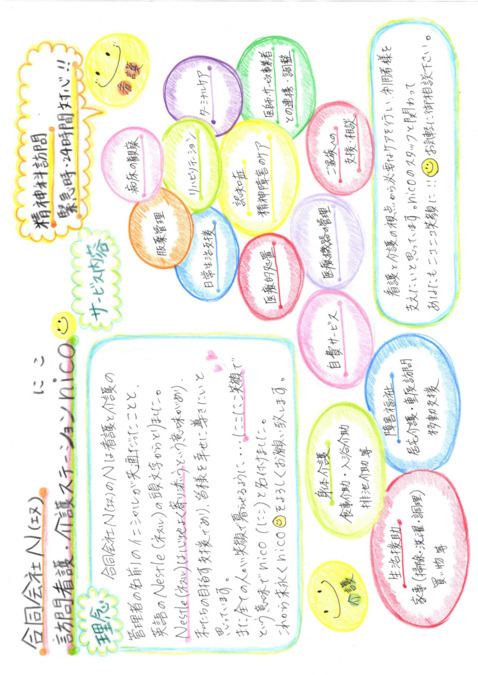 合同会社N(エヌ)
にこ
訪問看護・介護ステーションnico
精神科訪問
緊急時・24時間対応!!
理念
合同会社N(エヌ)のNは看護と介護の
管理者の名前のイニシャルが共通だったことと、
英語のNestle(ネスル)の頭文字からとりました。
Nestle(ネスル)には「心地よく寄り添う」という意味があり、
私たちの目指す支援であり、皆様を幸せに導きたいと
思っています。
また、全ての人が笑顔で暮らせるように…(にこにこ笑顔で)
という意味でnico(にこ)と名付けました。
これから末永くnicoをよろしくお願い致します。
サービス内容
看護
病床の観察
ターミナルケア
服薬管理
リハビリテーション
医師・サービス事業者
との連携・調整
日常生活支援
認知症
精神障害のケア
医療的処置
ご家族への
支援・相談
医療機器の管理
自費サービス
介護
身体介護
食事介助・入浴介助
排泄介助 等
障害福祉
居宅介護・重度訪問
移動支援
生活援助
家事(掃除・洗濯・調理)
買い物 等
看護と介護の視点から必要なケアを行い利用者様を
支えたいと思っています。nicoのスタッフと関わって
あなたもニコニコ笑顔に!!お気軽に御相談下さい。